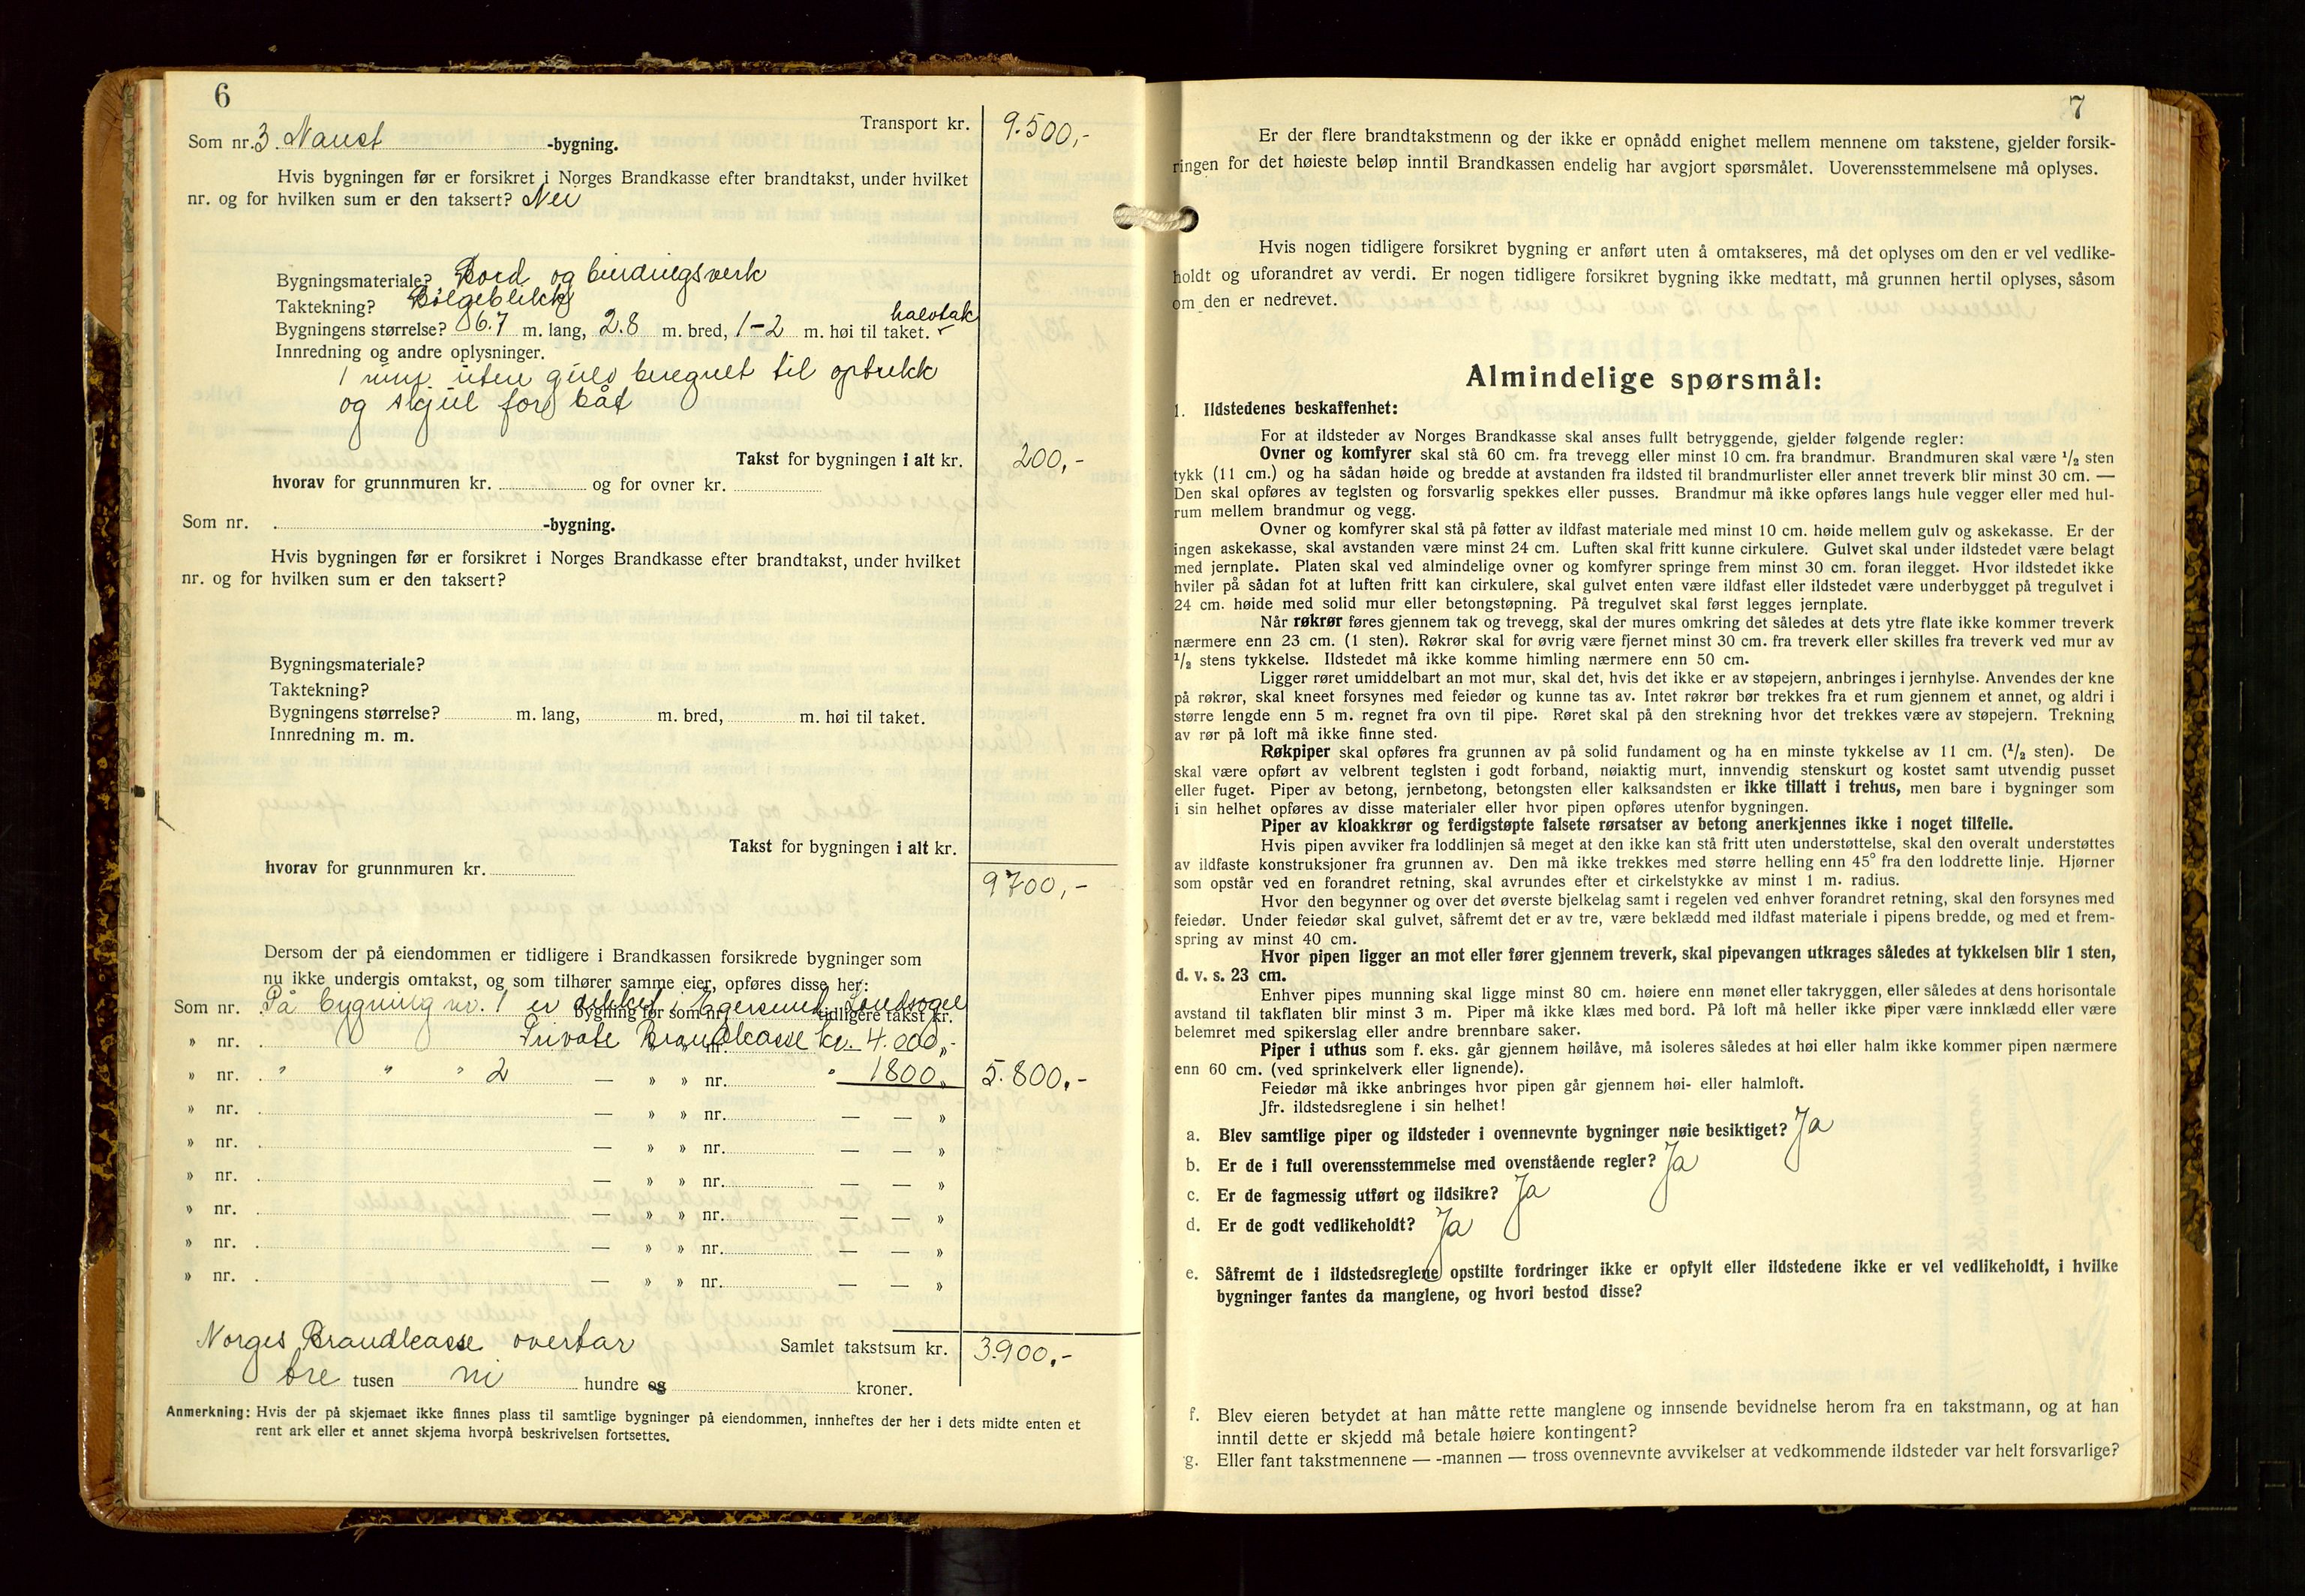 6
Transport kr. 9.500,-
Som nr. 3 Naust -bygning.
Hvis bygningen før er forsikret i Norges Brandkasse efter brandtakst, under hvilket
nr. og for hvilken sum er den taksert? Nei
Bygningsmateriale? Bord og bindingsverk
Taktekning? Bølgeblikk
halvtak
Bygningens størrelse? 6.7 m. lang, 2.8 m. bred, 1-2 m. høi til taket.
Innredning og andre oplysninger.
1 rum uten gulv beregnet til optrekk
og skjul for båt
Takst for bygningen i alt kr. 200,-
hvorav for grunnmuren kr. og for ovner kr.
Som nr. -bygning.
Hvis bygningen før er forsikret i Norges Brandkasse efter brandtakst, under hvilket
nr. og for hvilken sum er den taksert?
Bygningsmateriale?
Taktekning?
Bygningens størrelse? m. lang, m. bred, m. høi til taket.
Innredning m. m.
Takst for bygningen i alt kr.
hvorav for grunnmuren kr.
9700,-
Dersom der på eiendommen er tidligere i Brandkassen forsikrede bygninger som
nu ikke undergis omtakst, og som tilhører samme eier, opføres disse her:
På bygning nr. 1 er dekket i Egersund Landsogn
Som nr. bygning før som nr. tidligere takst kr.
» nr. Private Brandkasse kr. 4.000,-
» nr. " " " 2 — » » nr. " 1800,- 5.800,-
» nr. — » » nr. — — »
» nr. — » » nr. — — »
» nr. — » » nr. — — »
» nr. — » » nr. — — »
» nr. — » » nr. — — »
» nr. — » » nr. — — »
Norges Brandkasse overtar Samlet takstsum kr. 3.900,-
tre tusen ni hundre og kroner.
Anmerkning: Hvis der på skjemaet ikke finnes plass til samtlige bygninger på eiendommen, innheftes der her i dets midte enten et
rent ark eller et annet skjema hvorpå beskrivelsen fortsettes.
7
Er der flere brandtakstmenn og der ikke er opnådd enighet mellem mennene om takstene, gjelder forsik-
ringen for det høieste beløp inntil Brandkassen endelig har avgjort spørsmålet. Uoverensstemmelsene må oplyses.
Hvis nogen tidligere forsikret bygning er anført uten å omtakseres, må det oplyses om den er vel vedlike-
holdt og uforandret av verdi. Er nogen tidligere forsikret bygning ikke medtatt, må grunnen hertil oplyses, såsom
om den er nedrevet.
Almindelige spørsmål:
1. Ildstedenes beskaffenhet:
For at ildsteder av Norges Brandkasse skal anses fullt betryggende, gjelder følgende regler:
Ovner og komfyrer skal stå 60 cm. fra trevegg eller minst 10 cm. fra brandmur. Brandmuren skal være 1/2 sten
tykk (11 cm.) og ha sådan høide og bredde at avstanden fra ildsted til brandmurlister eller annet treverk blir minst 30 cm. —
Den skal opføres av teglsten og forsvarlig spekkes eller pusses. Brandmur må ikke opføres langs hule vegger eller med hul-
rum mellem brandmur og vegg.
Ovner og komfyrer skal stå på føtter av ildfast materiale med minst 10 cm. høide mellem gulv og askekasse. Er der
ingen askekasse, skal avstanden være minst 24 cm. Luften skal fritt kunne cirkulere. Gulvet skal under ildstedet være belagt
med jernplate. Platen skal ved almindelige ovner og komfyrer springe frem minst 30 cm. foran ilegget. Hvor ildstedet ikke
hviler på sådan fot at luften fritt kan cirkulere, skal gulvet enten være ildfast eller ildstedet være underbygget på tregulvet i
24 cm. høide med solid mur eller betongstøpning. På tregulvet skal først legges jernplate.
Når røkrør føres gjennem tak og trevegg, skal der mures omkring det således at dets ytre flate ikke kommer treverk
nærmere enn 23 cm. (1 sten). Røkrør skal for øvrig være fjernet minst 30 cm. fra treverk eller skilles fra treverk ved mur av
1/2 stens tykkelse. Ildstedet må ikke komme himling nærmere enn 50 cm.
Ligger røret umiddelbart an mot mur, skal det, hvis det ikke er av støpejern, anbringes i jernhylse. Anvendes der kne
på røkrør, skal kneet forsynes med feiedør og kunne tas av. Intet røkrør bør trekkes fra et rum gjennem et annet, og aldri i
større lengde enn 5 m. regnet fra ovn til pipe. Røret skal på den strekning hvor det trekkes være av støpejern. Trekning
av rør på loft må ikke finne sted.
Røkpiper skal opføres fra grunnen av på solid fundament og ha en minste tykkelse av 11 cm. (1/2 sten). De
skal være opført av velbrent teglsten i godt forband, nøiaktig murt, innvendig stenskurt og kostet samt utvendig pusset
eller fuget. Piper av betong, jernbetong, betongsten eller kalksandsten er ikke tillatt i trehus, men bare i bygninger som
i sin helhet opføres av disse materialer eller hvor pipen opføres utenfor bygningen.
Piper av kloakkrør og ferdigstøpte falsete rørsatser av betong anerkjennes ikke i noget tilfelle.
Hvis pipen avviker fra loddlinjen så meget at den ikke kan stå fritt uten understøttelse, skal den overalt understøttes
av ildfaste konstruksjoner fra grunnen av. Den må ikke trekkes med større helling enn 45° fra den loddrette linje. Hjørner
som opstår ved en forandret retning, skal avrundes efter et cirkelstykke av minst 1 m. radius.
Hvor den begynner og over det øverste bjelkelag samt i regelen ved enhver forandret retning, skal den forsynes med
feiedør. Under feiedør skal gulvet, såfremt det er av tre, være beklædd med ildfast materiale i pipens bredde, og med et frem-
spring av minst 40 cm.
Hvor pipen ligger an mot eller fører gjennem treverk, skal pipevangen utkrages således at tykkelsen blir 1 sten,
d. v. s. 23 cm.
Enhver pipes munning skal ligge minst 80 cm. høiere enn mønet eller takryggen, eller således at dens horisontale
avstand til takflaten blir minst 3 m. Piper må ikke klæs med bord. På loft må heller ikke piper være innklædd eller være
belemret med spikerslag eller andre brennbare saker.
Piper i uthus som f. eks. går gjennem høilåve, må isoleres således at høi eller halm ikke kommer pipen nærmere
enn 60 cm. (ved sprinkelverk eller lignende).
Feiedør må ikke anbringes hvor pipen går gjennem høi- eller halmloft.
Jfr. ildstedsreglene i sin helhet!
a. Blev samtlige piper og ildsteder i ovennevnte bygninger nøie besiktiget? Ja
b. Er de i full overensstemmelse med ovenstående regler? Ja
c. Er de fagmessig utført og ildsikre? Ja
d. Er de godt vedlikeholdt? Ja
e. Såfremt de i ildstedsreglene opstilte fordringer ikke er opfylt eller ildstedene ikke er vel vedlikeholdt, i hvilke
bygninger fantes da manglene, og hvori bestod disse?
f. Blev eieren betydet at han måtte rette manglene og innsende bevidnelse herom fra en takstmann, og at han
inntil dette er skjedd må betale høiere kontingent?
g. Eller fant takstmennene — -mannen — tross ovennevnte avvikelser at vedkommende ildsteder var helt forsvarlige?